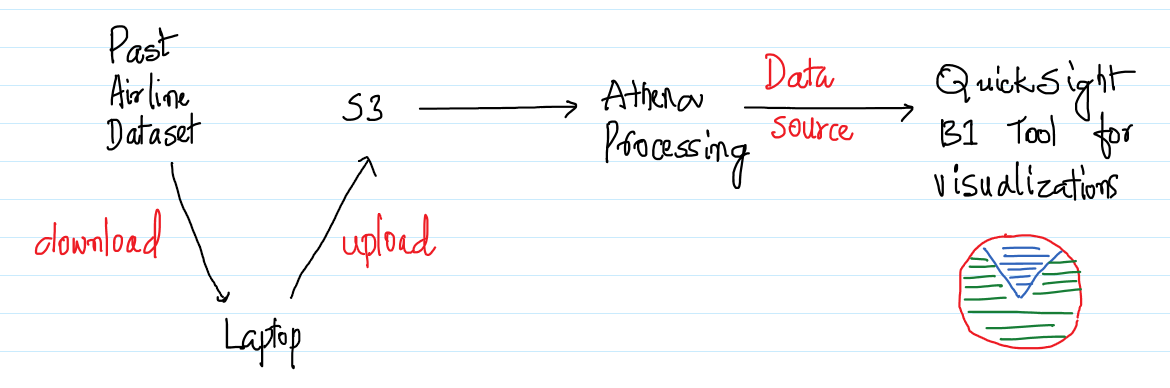 Past
Airline
Dataset
download
Laptop
upload
S3
Athena
Processing
Data
source
QuickSight
BI Tool for
visualizations